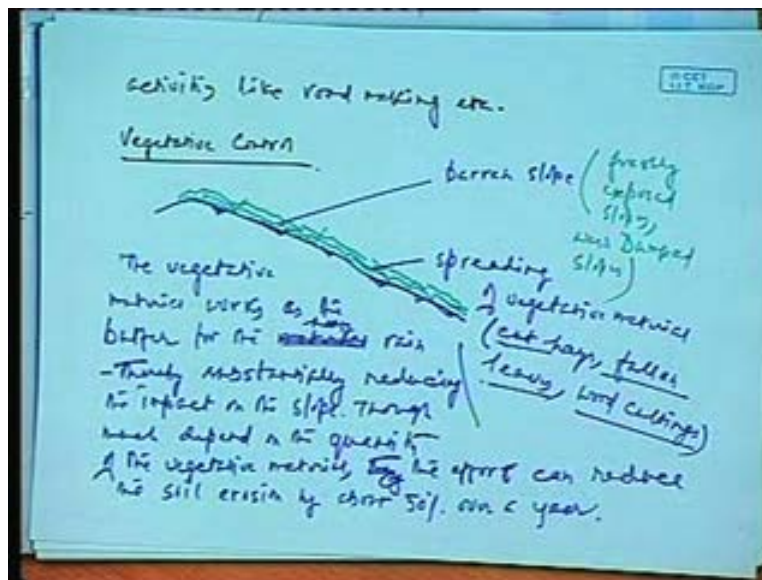 activity like road making etc.
Vegetative Control
barren slope (freshly
exposed
slopes,
Dumped
slopes)
spreading
of vegetative material
(cut hays, fallen
leaves, wood cuttings)
The vegetative
material works as the
buffer for the heavy rain
- Thereby substantially reducing
the impact on the slope. Though
much depend on the quantity
of the vegetative material, the effort can reduce
the soil erosion by about 50%. over a year.